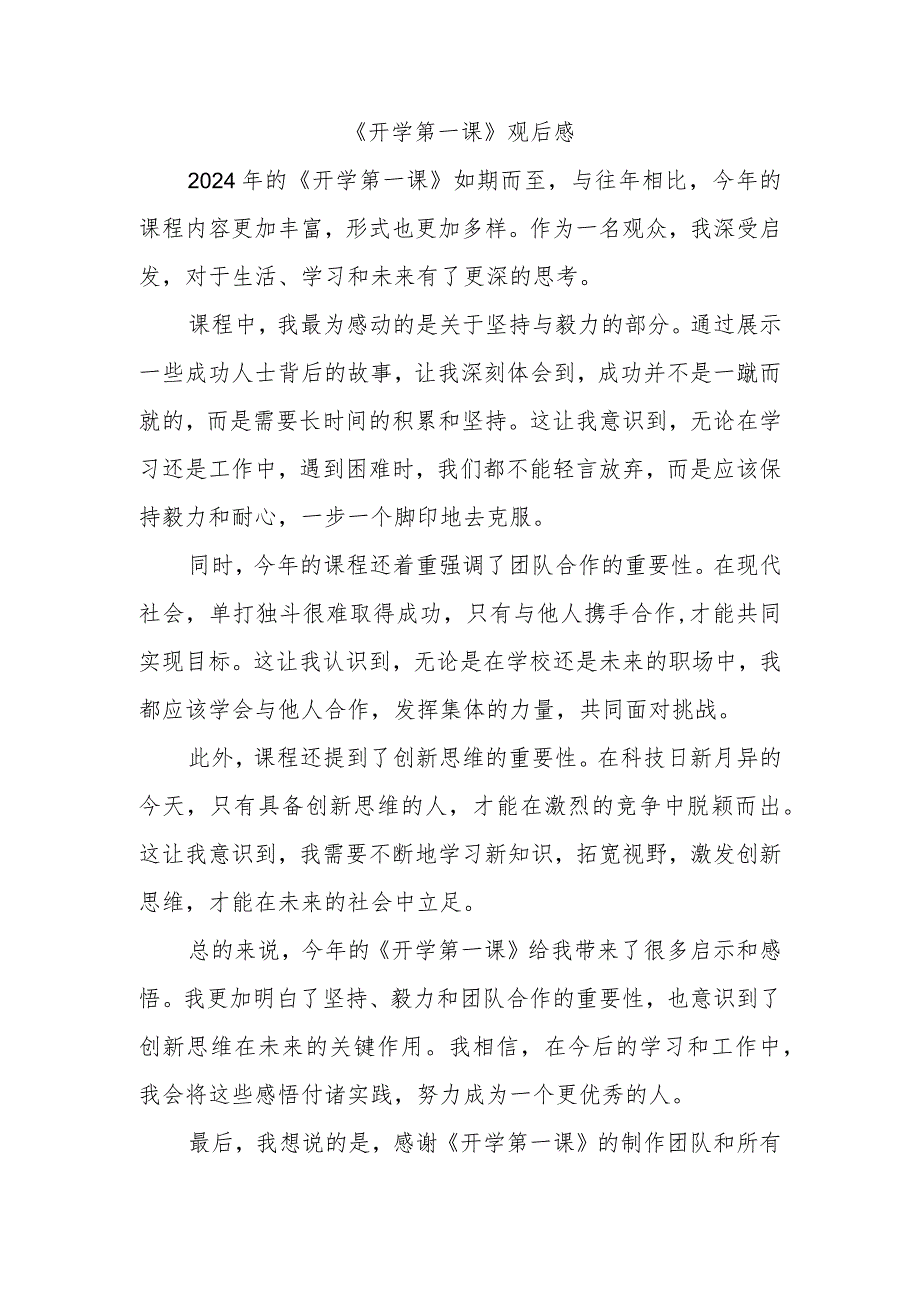 《开学第一课》观后感
2024年的《开学第一课》如期而至，与往年相比，今年的
课程内容更加丰富，形式也更加多样。作为一名观众，我深受启
发，对于生活、学习和未来有了更深的思考。
课程中，我最为感动的是关于坚持与毅力的部分。通过展示
一些成功人士背后的故事，让我深刻体会到，成功并不是一蹴而
就的，而是需要长时间的积累和坚持。这让我意识到，无论在学
习还是工作中，遇到困难时，我们都不能轻言放弃，而是应该保
持毅力和耐心，一步一个脚印地去克服。
同时，今年的课程还着重强调了团队合作的重要性。在现代
社会，单打独斗很难取得成功，只有与他人携手合作,才能共同
实现目标。这让我认识到，无论是在学校还是未来的职场中，我
都应该学会与他人合作，发挥集体的力量，共同面对挑战。
此外，课程还提到了创新思维的重要性。在科技日新月异的
今天，只有具备创新思维的人，才能在激烈的竞争中脱颖而出。
这让我意识到，我需要不断地学习新知识，拓宽视野，激发创新
思维，才能在未来的社会中立足。
总的来说，今年的《开学第一课》给我带来了很多启示和感
悟。我更加明白了坚持、毅力和团队合作的重要性，也意识到了
创新思维在未来的关键作用。我相信，在今后的学习和工作中，
我会将这些感悟付诸实践，努力成为一个更优秀的人。
最后，我想说的是，感谢《开学第一课》的制作团队和所有